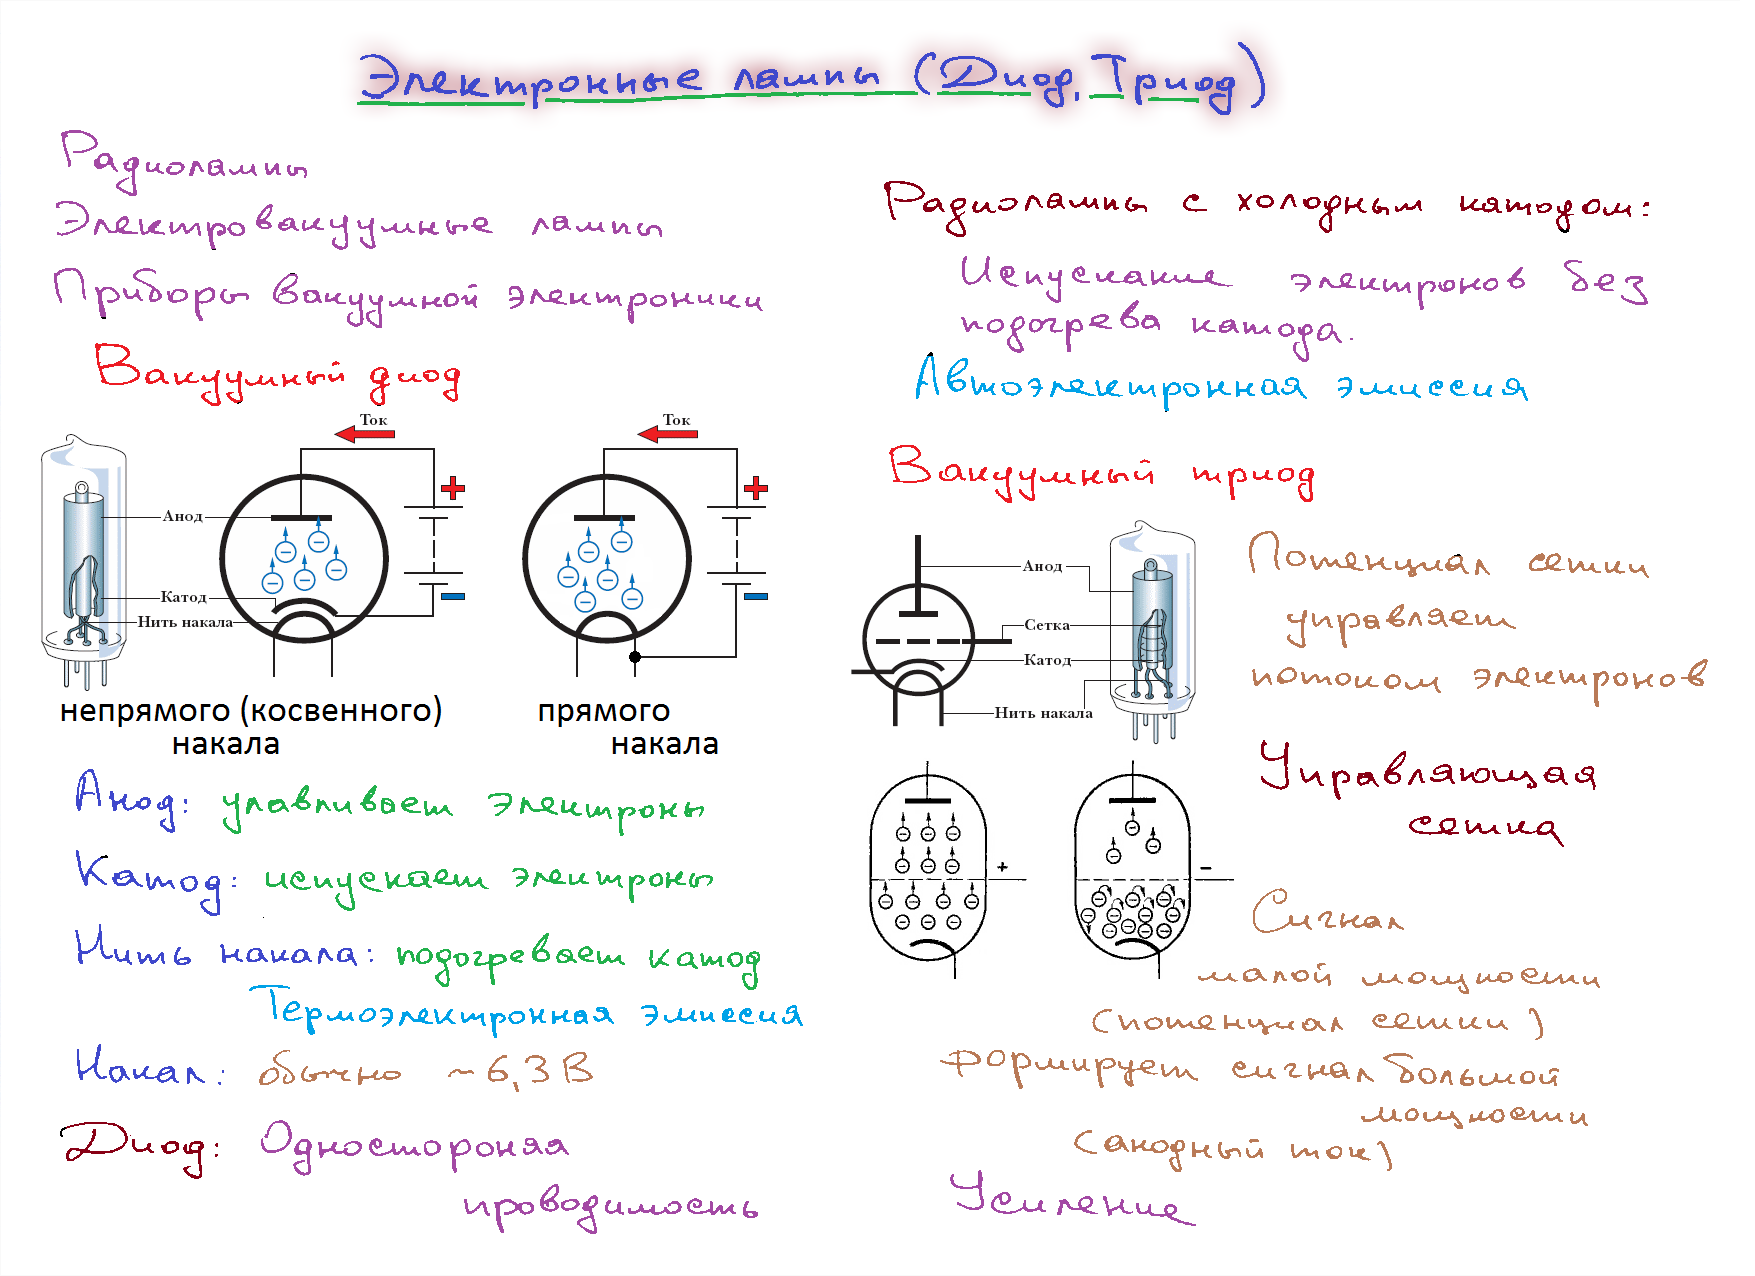 Электронные лампы (Диод, Триод)
Радиолампы
Электровакуумные лампы
Приборы вакуумной электроники
Вакуумный диод
Ток
Ток
Анод
Катод
Нить накала
+
−
+
−
непрямого (косвенного)
накала
прямого
накала
Анод: улавливает электроны
Катод: испускает электроны
Нить накала: подогревает катод
Термоэлектронная эмиссия
Накал: обычно ~6,3 В
Диод: Одностороняя
проводимость
Радиолампы с холодным катодом:
Испускание электронов без
подогрева катода.
Автоэлектронная эмиссия
Вакуумный триод
Анод
Сетка
Катод
Нить накала
Потенциал сетки
управляет
потоком электронов
Управляющая
сетка
+
−
Сигнал
малой мощности
(потенциал сетки)
формирует сигнал большой
мощности
(анодный ток)
Усиление